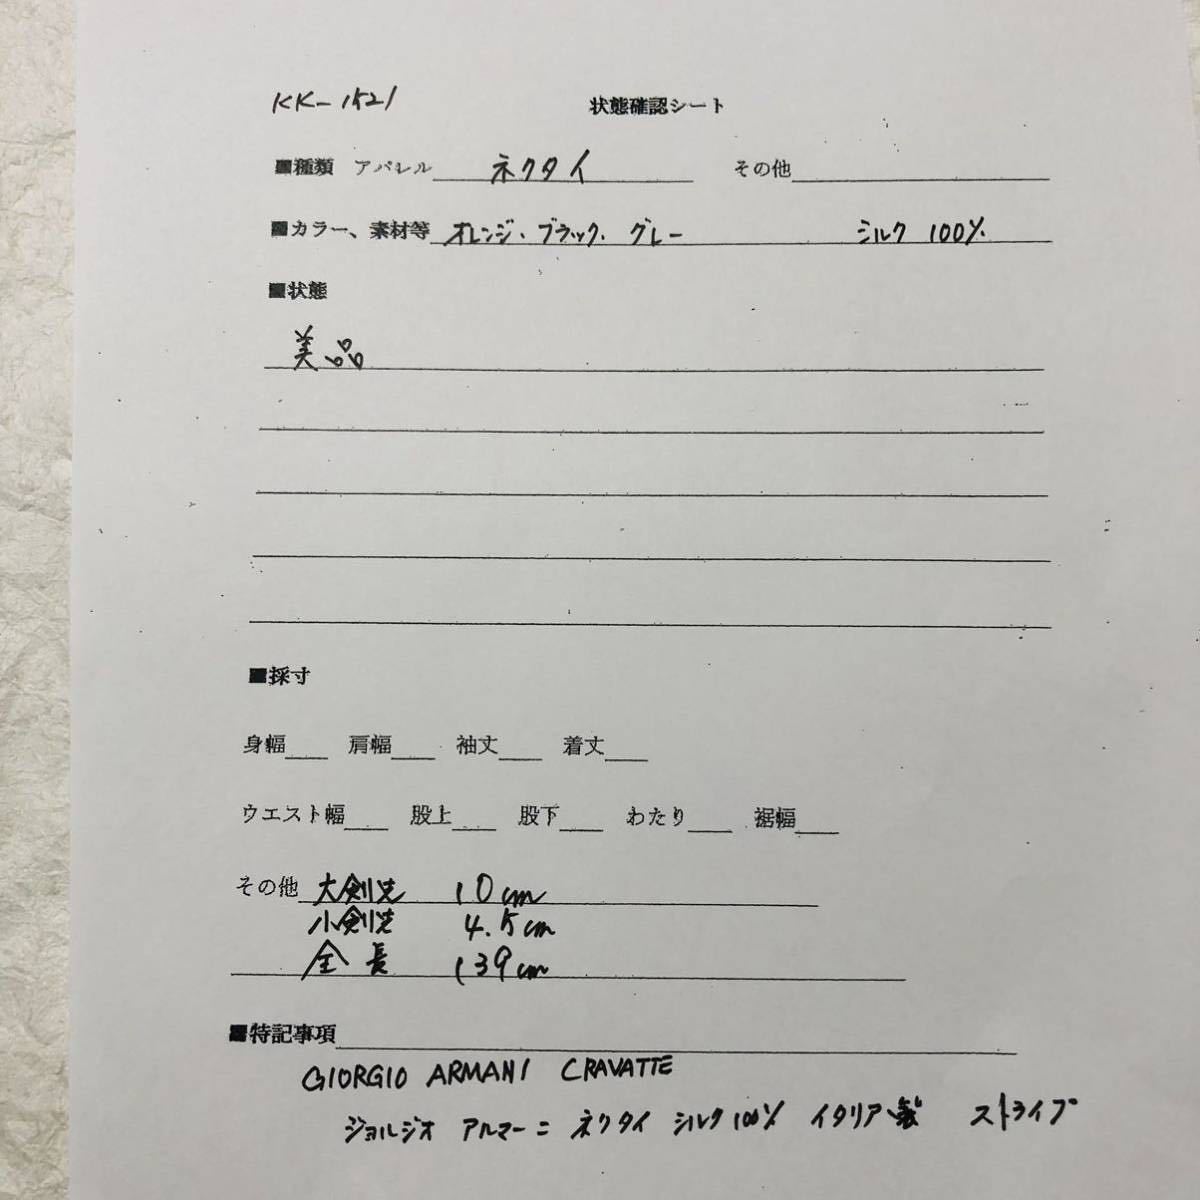 KK-1521 状態確認シート
■種類 アパレル ネクタイ その他
■カラー、素材等 オレンジ・ブラック・グレー シルク 100%
■状態
美品
■採寸
身幅 肩幅 袖丈 着丈
ウエスト幅 股上 股下 わたり 裾幅
その他 大剣先 10cm
小剣先 4.5cm
全長 139cm
■特記事項
GIORGIO ARMANI CRAVATTE
ジョルジオ アルマーニ ネクタイ シルク100% イタリア製 ストライプ